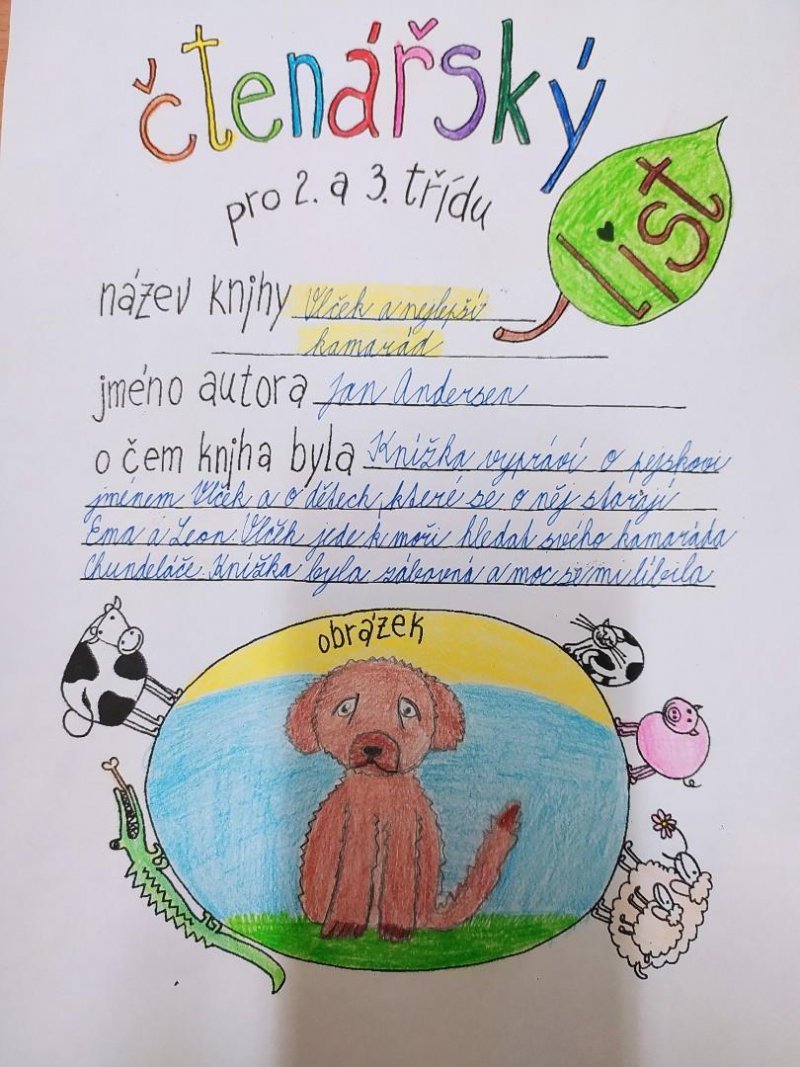 čtenářský
list
pro 2. a 3. třídu
název knihy Vlček a nejlepší
kamarád
jméno autora Jan Andersen
o čem kniha byla Knížka vypráví o pejskovi
jménem Vlček a o dětech, které se o něj starají
Ema a Leon. Vlčěk jede k moři hledat svého kamaráda
Chundeláče. Knížka byla zábavná a moc se mi líbila
obrázek